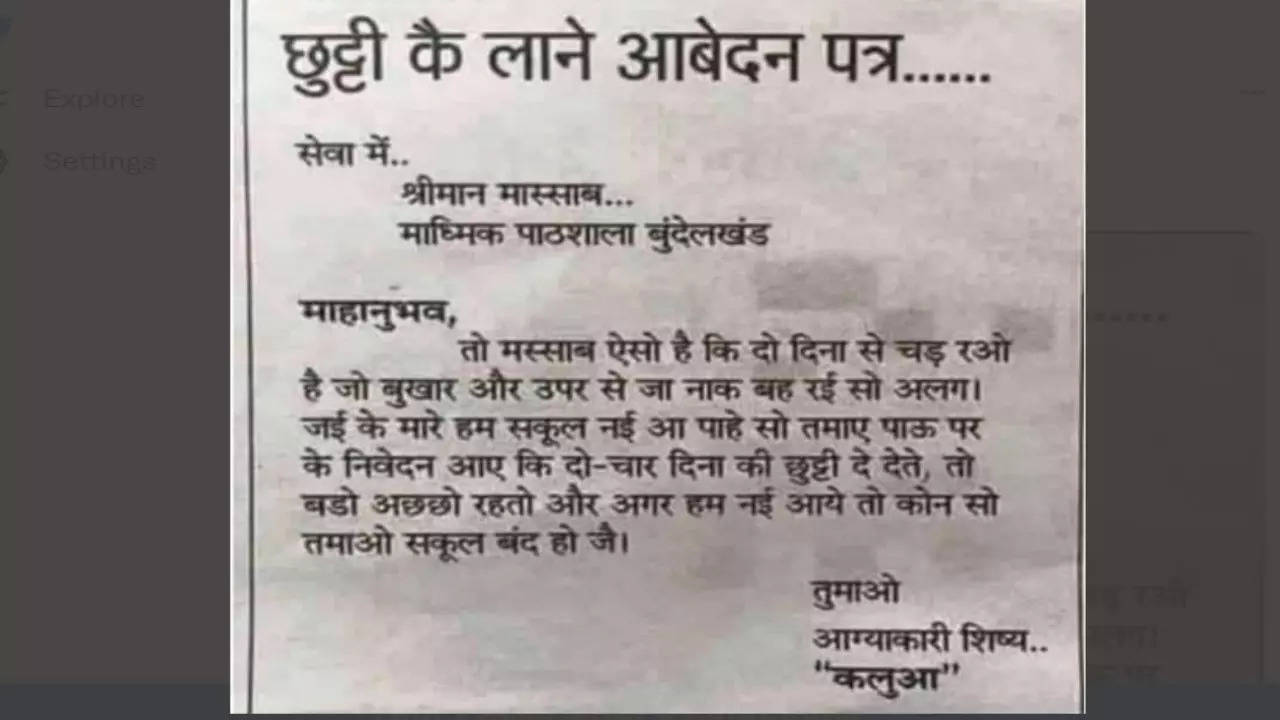 छुट्टी कै लाने आबेदन पत्र......
सेवा में..
श्रीमान मास्साब...
माध्मिक पाठशाला बुंदेलखंड
माहानुभव,
तो मस्साब ऐसो है कि दो दिना से चड़ रओ
है जो बुखार और उपर से जा नाक बह रई सो अलग।
जई के मारे हम सकूल नई आ पाहे सो तमाए पाऊ पर
के निवेदन आए कि दो-चार दिना की छुट्टी दे देते, तो
बडो अछछो रहतो और अगर हम नई आये तो कोन सो
तमाओ सकूल बंद हो जै।
तुमाओ
आग्याकारी शिष्य..
"कलुआ"
Explore
Settings